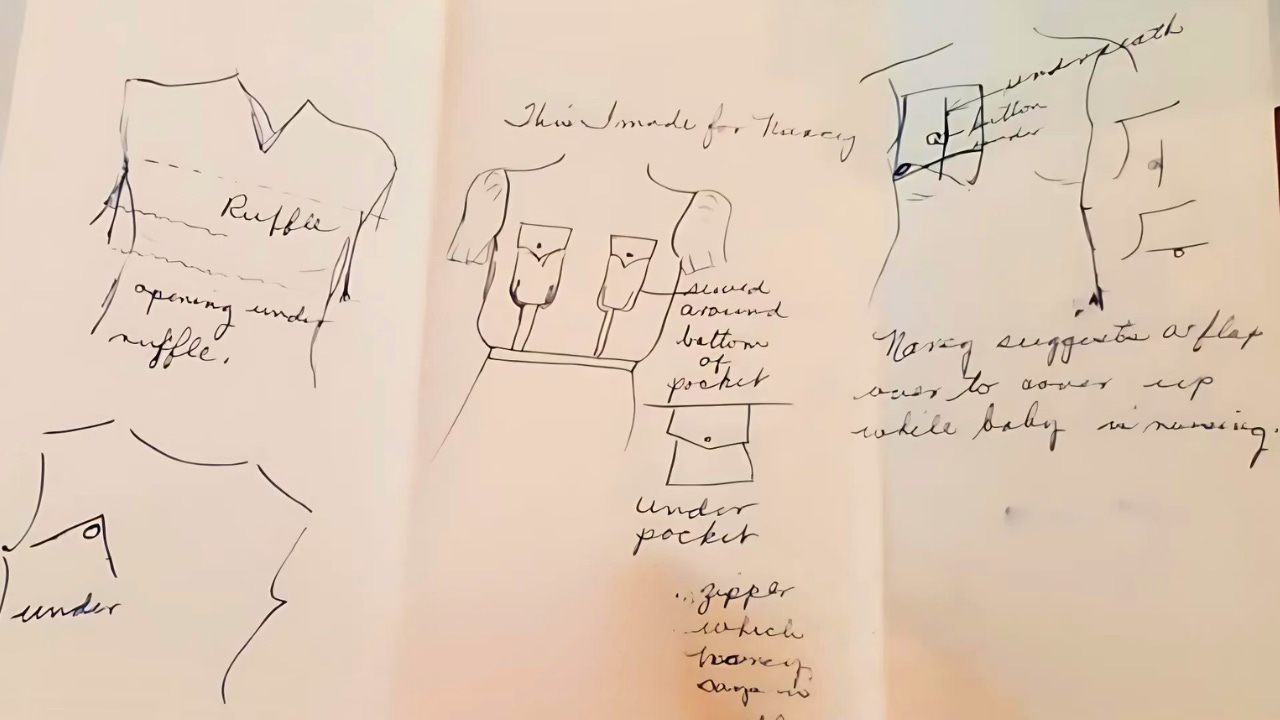 Ruffle
opening under
ruffle.
under
This I made for Nancy
sewed
around
bottom
of
pocket
under
pocket
zipper
which
Nancy
says is
underneath
button
under
Nancy suggests a flap
over to cover up
while baby is nursing.